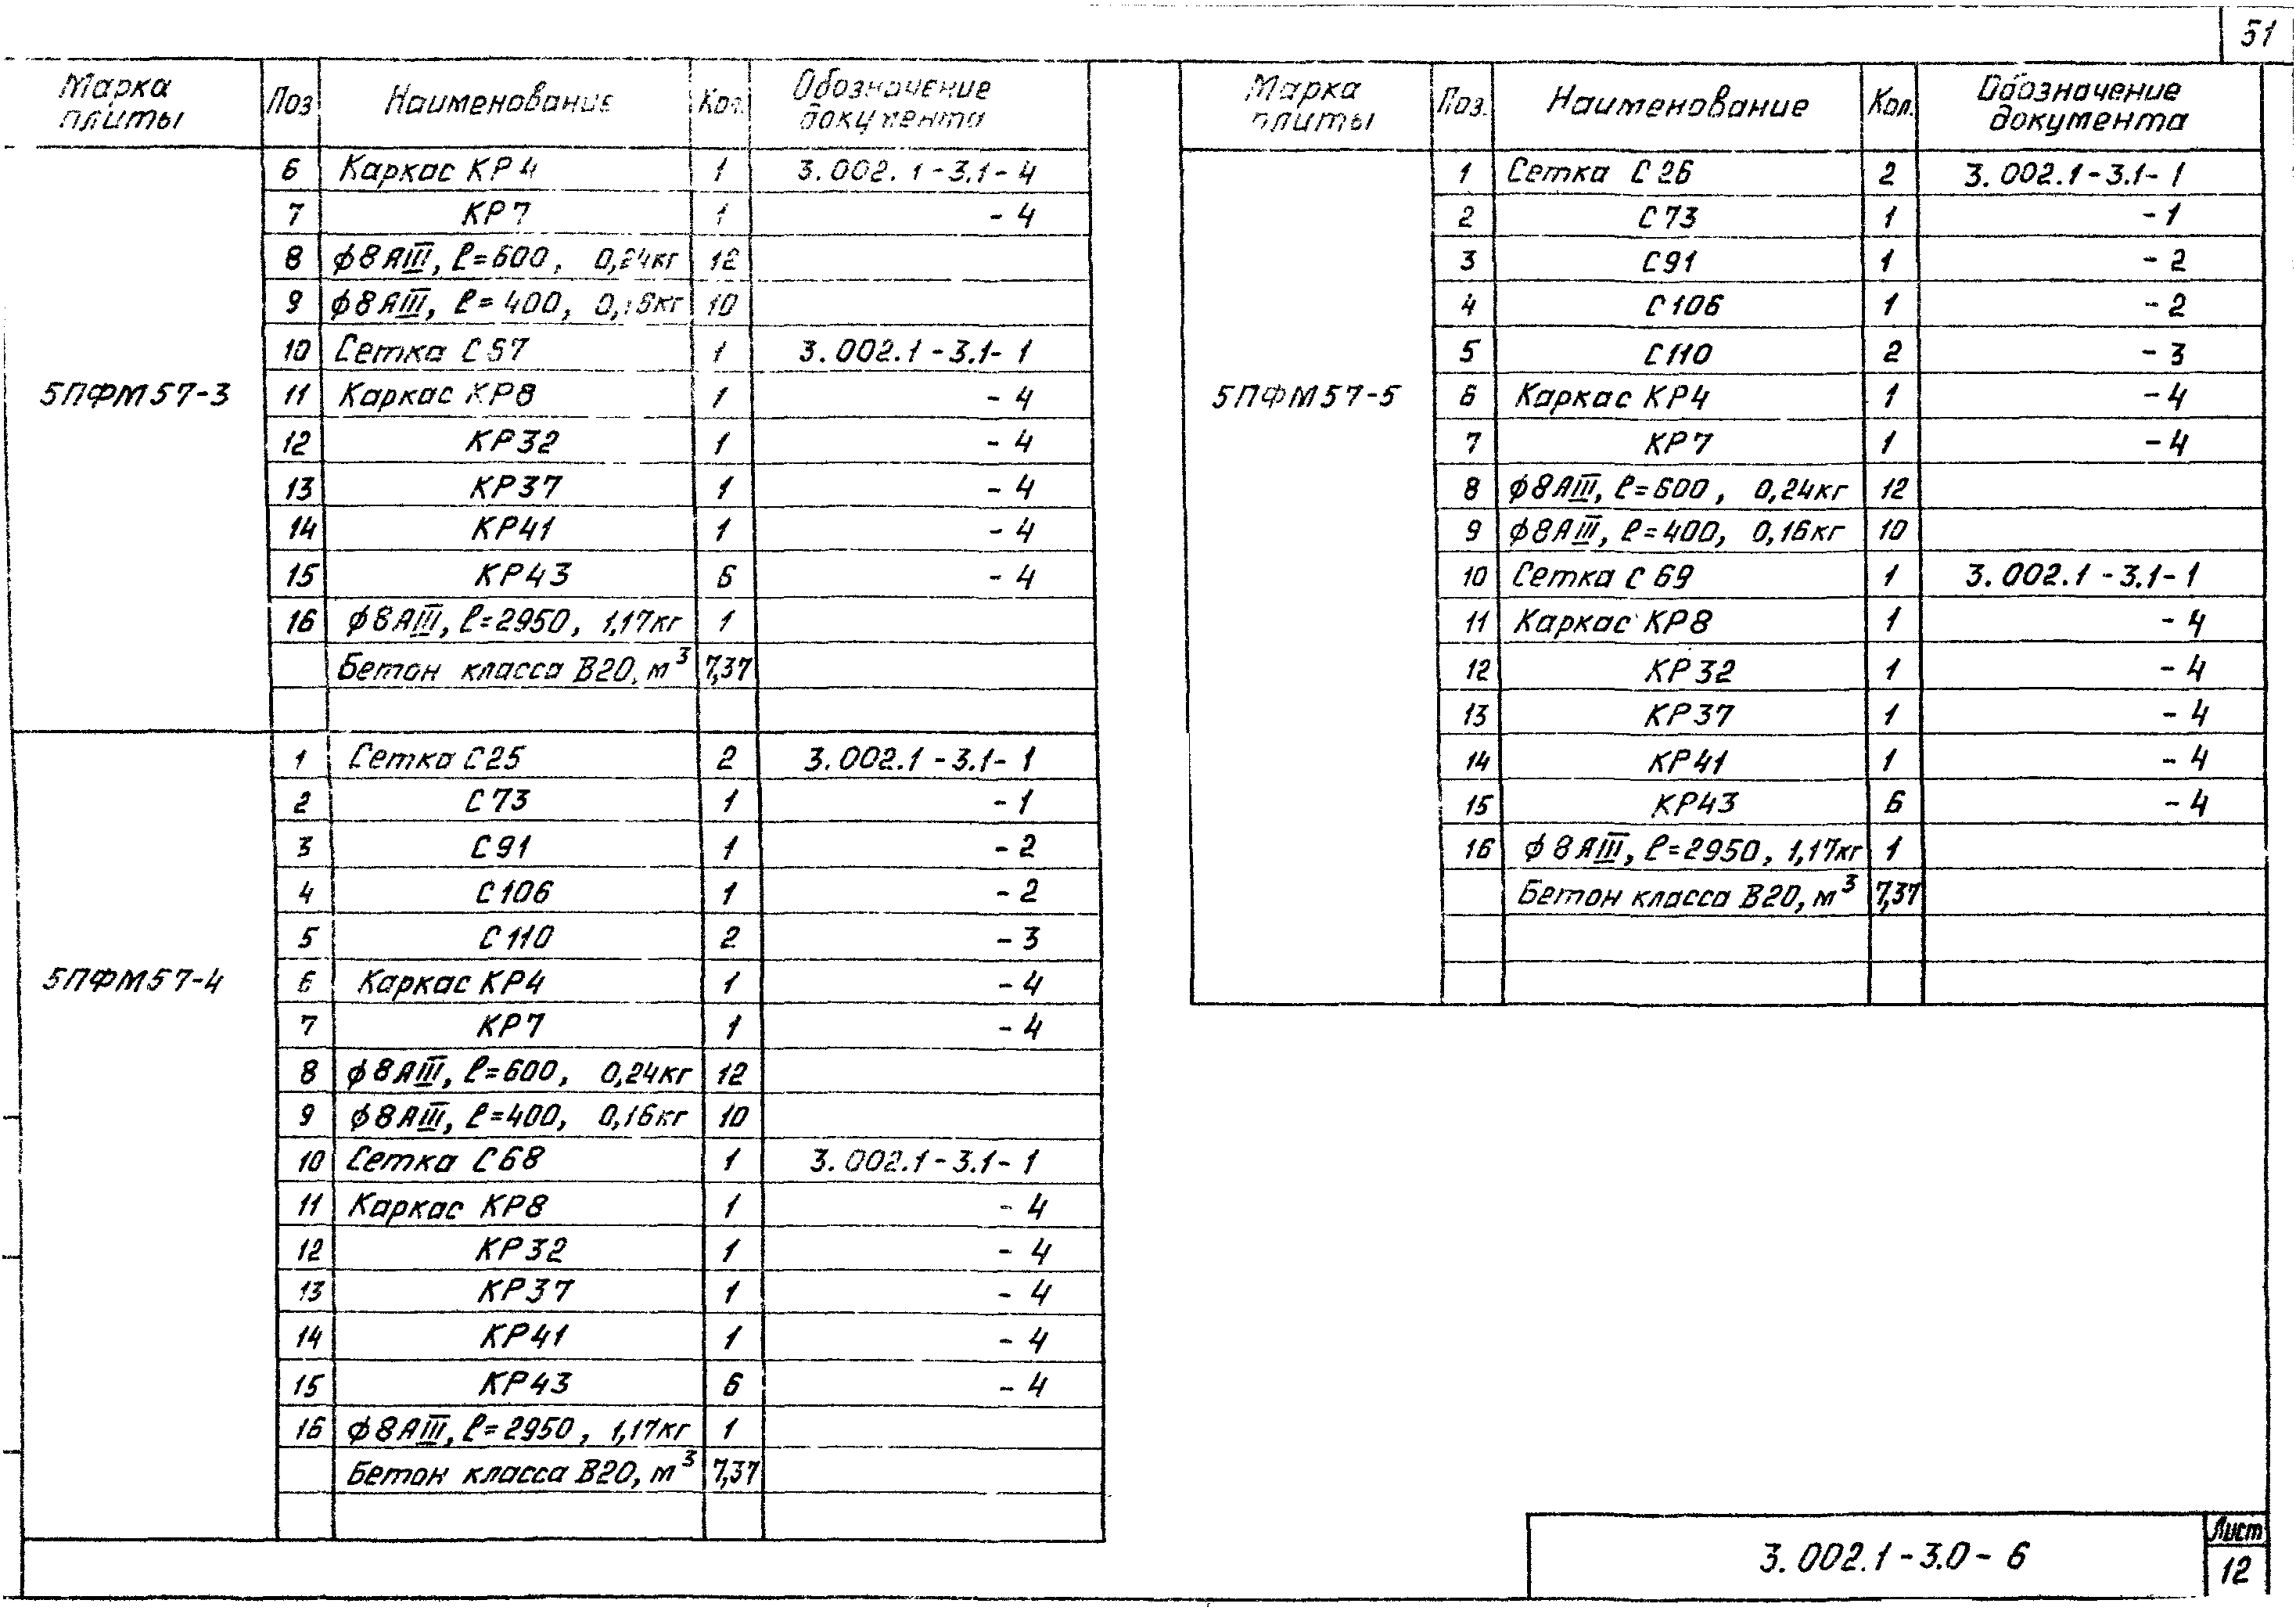 51
Марка плиты Поз Наименование Кол. Обозначение документа
5ПФМ57-3
6 Каркас КР4 1 3.002.1-3.1-4
7 КР7 1 -4
8 ϕ8АIII, ℓ=600, 0,24кг 12
9 ϕ8АIII, ℓ=400, 0,16кг 10
10 Сетка С67 1 3.002.1-3.1-1
11 Каркас КР8 1 -4
12 КР32 1 -4
13 КР37 1 -4
14 КР41 1 -4
15 КР43 6 -4
16 ϕ8АIII, ℓ=2950, 1,17кг 1
Бетон класса В20, м³ 7,37
5ПФМ57-4
1 Сетка С25 2 3.002.1-3.1-1
2 С73 1 -1
3 С91 1 -2
4 С106 1 -2
5 С110 2 -3
6 Каркас КР4 1 -4
7 КР7 1 -4
8 ϕ8АIII, ℓ=600, 0,24кг 12
9 ϕ8АIII, ℓ=400, 0,16кг 10
10 Сетка С68 1 3.002.1-3.1-1
11 Каркас КР8 1 -4
12 КР32 1 -4
13 КР37 1 -4
14 КР41 1 -4
15 КР43 6 -4
16 ϕ8АIII, ℓ=2950, 1,17кг 1
Бетон класса В20, м³ 7,37
Марка плиты Поз. Наименование Кол. Обозначение документа
5ПФМ57-5
1 Сетка С26 2 3.002.1-3.1-1
2 С73 1 -1
3 С91 1 -2
4 С106 1 -2
5 С110 2 -3
6 Каркас КР4 1 -4
7 КР7 1 -4
8 ϕ8АIII, ℓ=600, 0,24кг 12
9 ϕ8АIII, ℓ=400, 0,16кг 10
10 Сетка С69 1 3.002.1-3.1-1
11 Каркас КР8 1 -4
12 КР32 1 -4
13 КР37 1 -4
14 КР41 1 -4
15 КР43 6 -4
16 ϕ8АIII, ℓ=2950, 1,17кг 1
Бетон класса В20, м³ 7,37
3.002.1-3.0-6
Лист
12